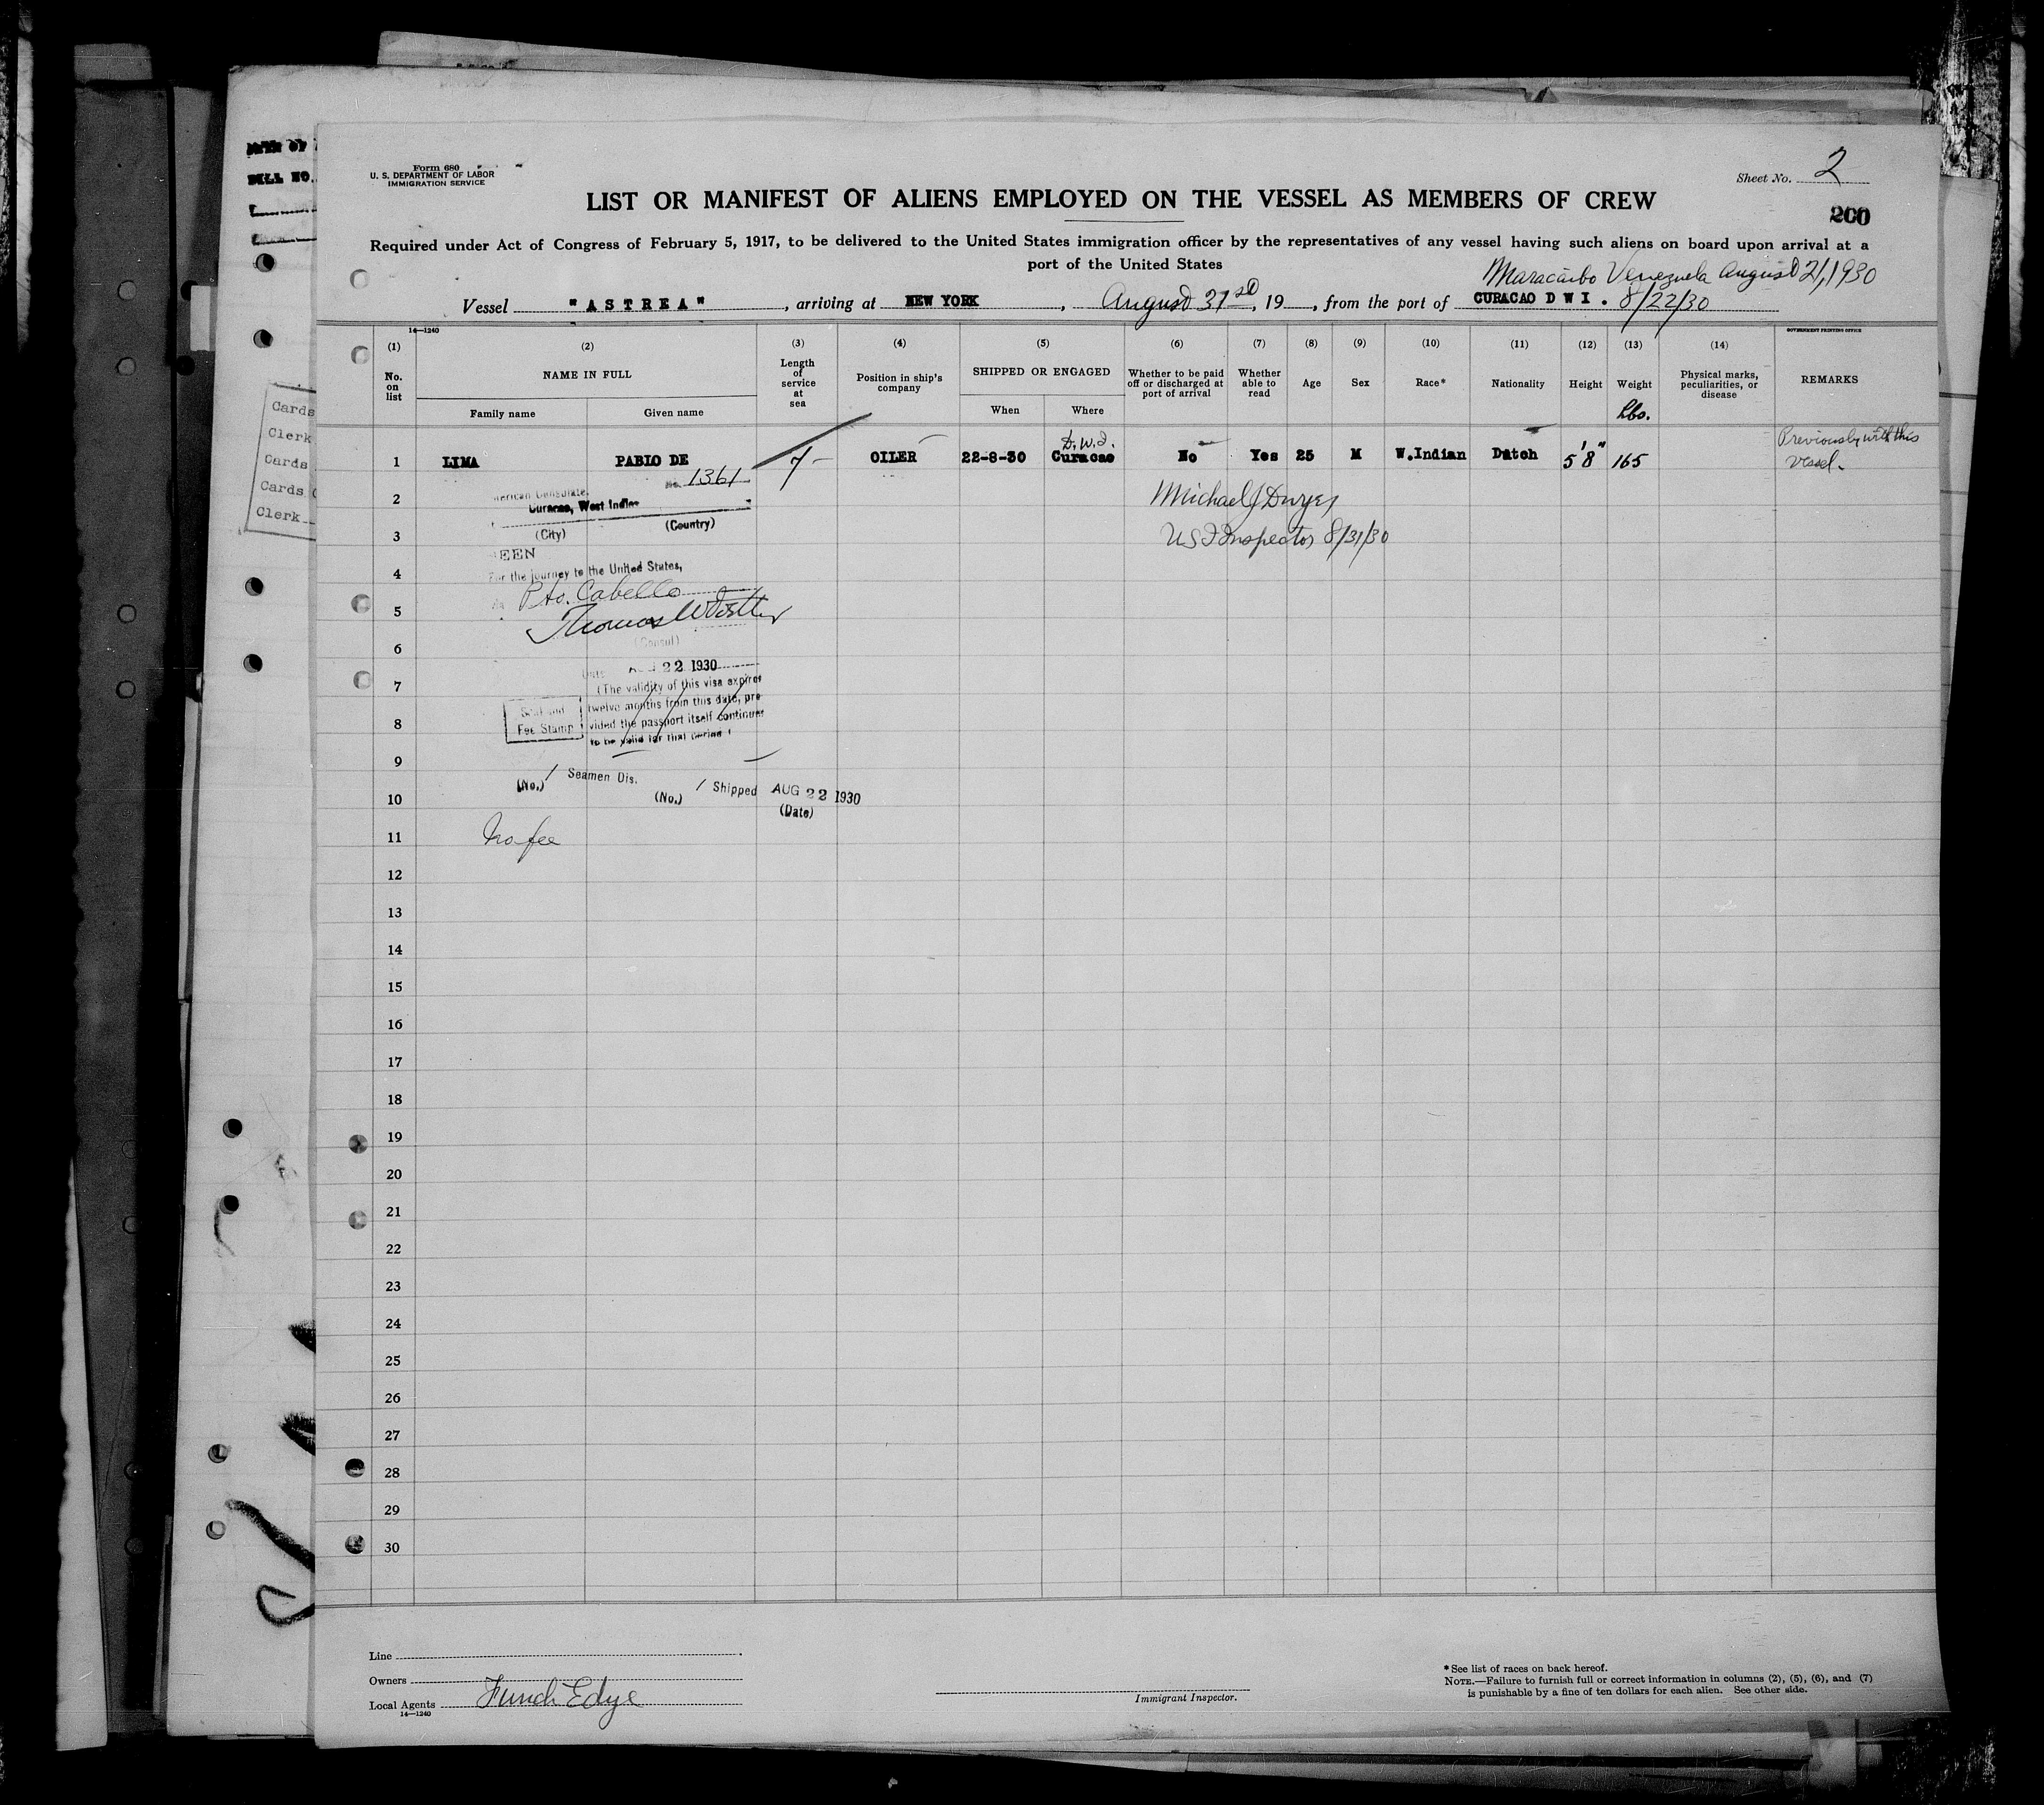 DATE OF
BILL NO.
Cards
Clerk
Cards
Cards
Clerk
Form 680
U. S. DEPARTMENT OF LABOR
IMMIGRATION SERVICE
Sheet No. 2
LIST OR MANIFEST OF ALIENS EMPLOYED ON THE VESSEL AS MEMBERS OF CREW
200
Required under Act of Congress of February 5, 1917, to be delivered to the United States immigration officer by the representatives of any vessel having such aliens on board upon arrival at a
port of the United States
Maracaibo Venezuela August 21, 1930
Vessel "ASTREA", arriving at NEW YORK, August 31st, 19 , from the port of CURACAO D W I . 8/22/30
14—1240
GOVERNMENT PRINTING OFFICE
(1) (2) (3) (4) (5) (6) (7) (8) (9) (10) (11) (12) (13) (14)
No. on list
NAME IN FULL
Family name
Given name
Length of service at sea
Position in ship's company
SHIPPED OR ENGAGED
When
Where
Whether to be paid off or discharged at port of arrival
Whether able to read
Age
Sex
Race*
Nationality
Height
Weight
Lbs.
Physical marks, peculiarities, or disease
REMARKS
1 LIMA PABLO DE 7 OILER 22-8-30 D.W.I. Curacao No Yes 25 M W.Indian Dutch 5'8" 165 Previously with this vessel.
No. 1361
2
American Consulate,
Curacao, West Indies
Michael J Dwyer
3
(City) (Country)
US I Inspector 8/31/30
SEEN
4
For the journey to the United States,
Pto. Cabello
5
Thomas W
6
(Consul)
Date AUG 22 1930
7
(The validity of this visa expires
twelve months from this date, pro
8
vided the passport itself continues
to be valid for that period)
Seal and
Fee Stamp
9
(No.) 1 Seamen Dis.
10
(No.) 1 Shipped AUG 22 1930
(Date)
11
No fee
12
13
14
15
16
17
18
19
20
21
22
23
24
25
26
27
28
29
30
Line
Owners
Local Agents Funch Edye
14—1240
Immigrant Inspector.
*See list of races on back hereof.
NOTE.—Failure to furnish full or correct information in columns (2), (5), (6), and (7)
is punishable by a fine of ten dollars for each alien. See other side.